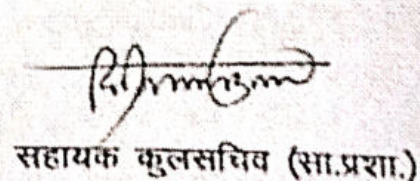 सहायक कुलसचिव (सा.प्रशा.)